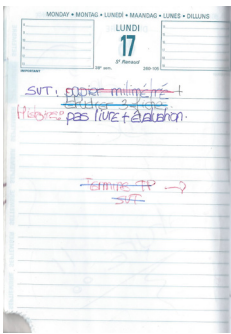 MONDAY • MONTAG • LUNEDÌ • MAANDAG • LUNES • DILLUNS
LUNDI
17
Sᵗ Renaud
IMPORTANT
SVT : papier milimétré +
étudier 3 fiches
Histoire : pas livre + évaluation.
Termine TP →
SVT